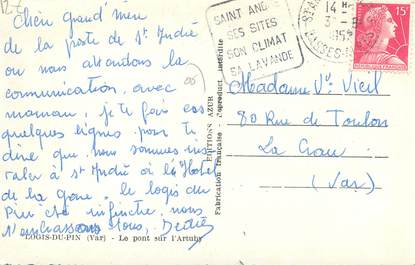 Chère grand'mère
de la poste de St André
où nous attendons la
communication, avec
maman, je te fais ces
quelques lignes pour te
dire que nous sommes
à St André à l'Hotel
de la gare. le logis du
Pin était infinche, nous
t'embrassons tous,
LOGIS-DU-PIN (Var) - Le pont sur l'Artuby
EDITIONS AZUR
Fabrication française - Reproduct. Interdite
SAINT ANDRÉ
SES SITES
SON CLIMAT
SA LAVANDE
14 H
15F
Madame Vve Vieil
80 Rue de Toulon
La Crau
(Var)